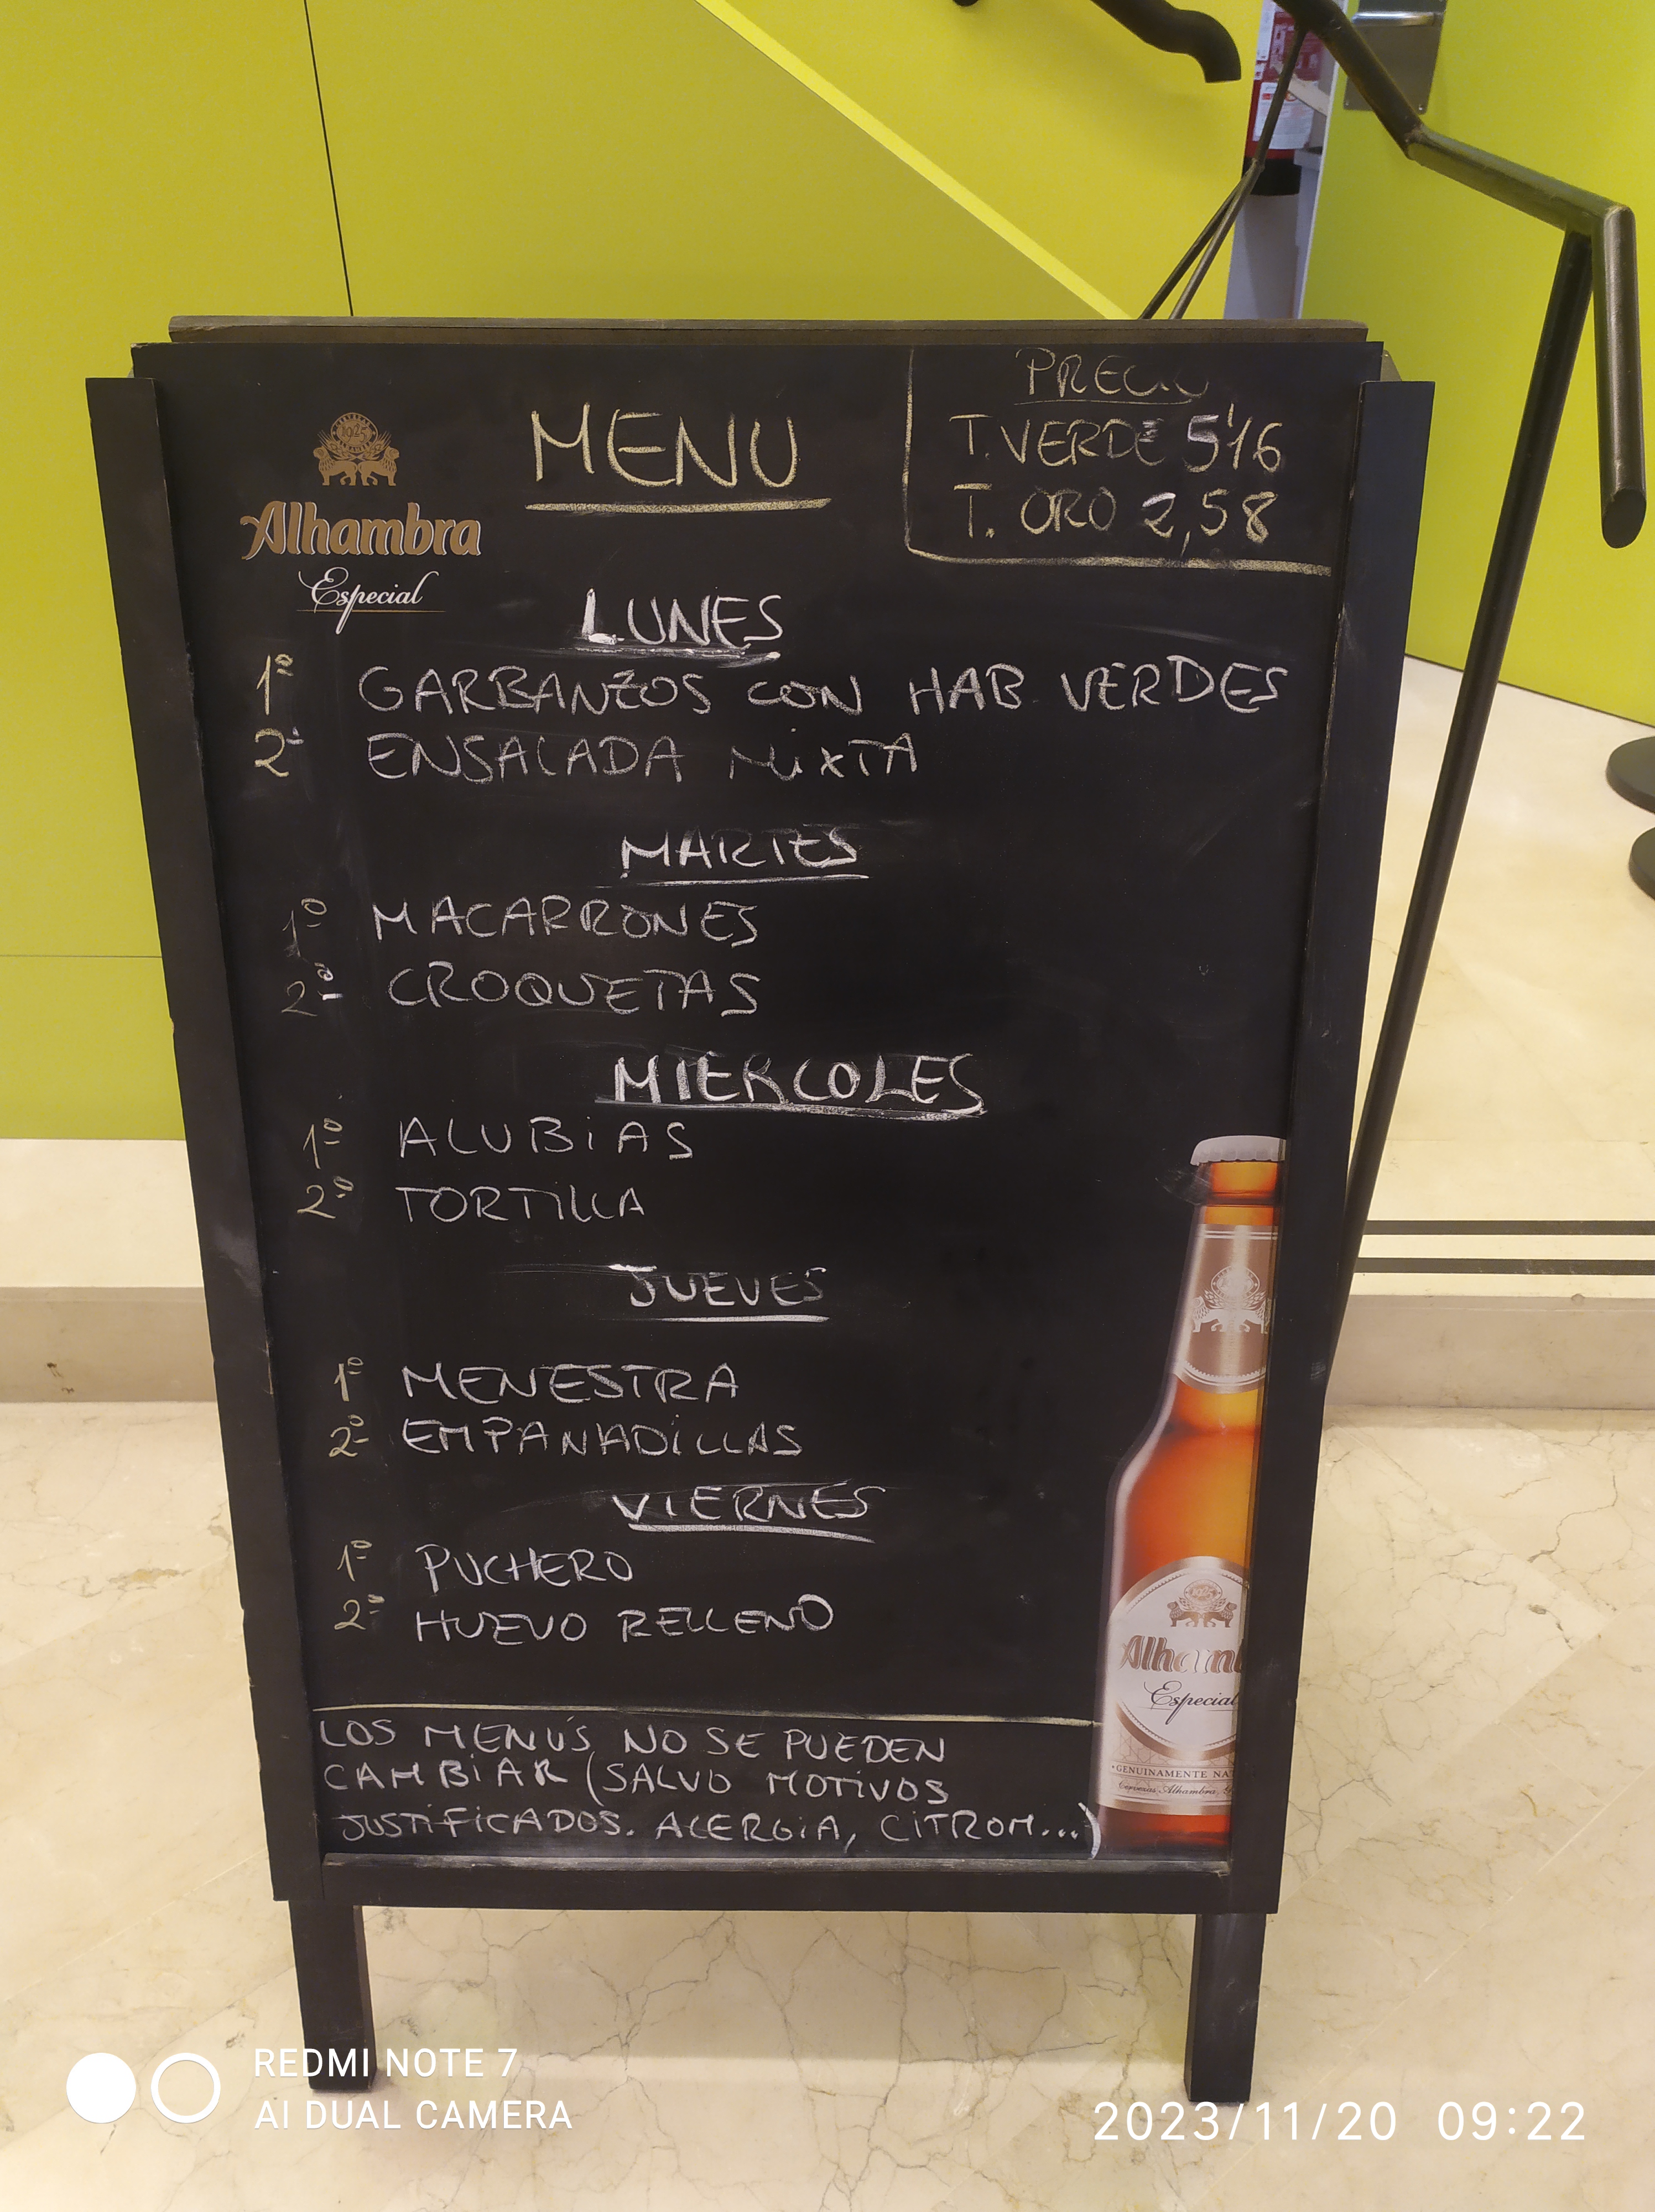 MENU
PRECIO
T. VERDE 5'16
T. ORO 2,58
1925
Alhambra
Especial
LUNES
1º GARBANZOS CON HAB VERDES
2º ENSALADA MIXTA
MARTES
1º MACARRONES
2º CROQUETAS
MIERCOLES
1º ALUBIAS
2º TORTILLA
JUEVES
1º MENESTRA
2º EMPANADILLAS
VIERNES
1º PUCHERO
2º HUEVO RELLENO
LOS MENÚS NO SE PUEDEN
CAMBIAR (SALVO MOTIVOS
JUSTIFICADOS. ALERGIA, CITROM...)
1925
Alhamb
Especial
·GENUINAMENTE NA
Cervezas Alhambra
REDMI NOTE 7
AI DUAL CAMERA
2023/11/20 09:22